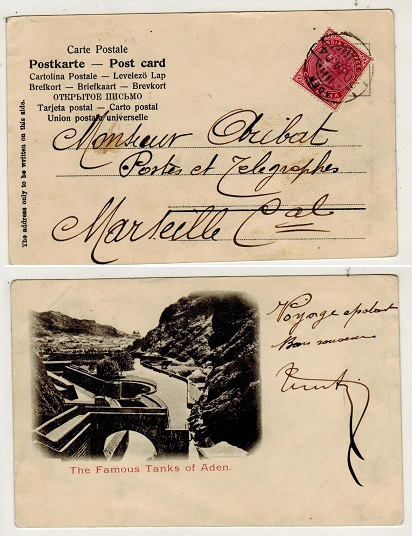 Carte Postale
Postkarte — Post card
Cartolina Postale — Levelező Lap
Brefkort — Briefkaart — Brevkort
ОТКРЫТОЕ ПИСЬМО
Tarjeta postal — Carto postal
Union postale universelle
The address only to be written on this side.
INDIA POSTAGE
ADEN
Monsieur
Postes et Telegraphes
Marseille Cal
Voyage
Bon souvenir
The Famous Tanks of Aden.